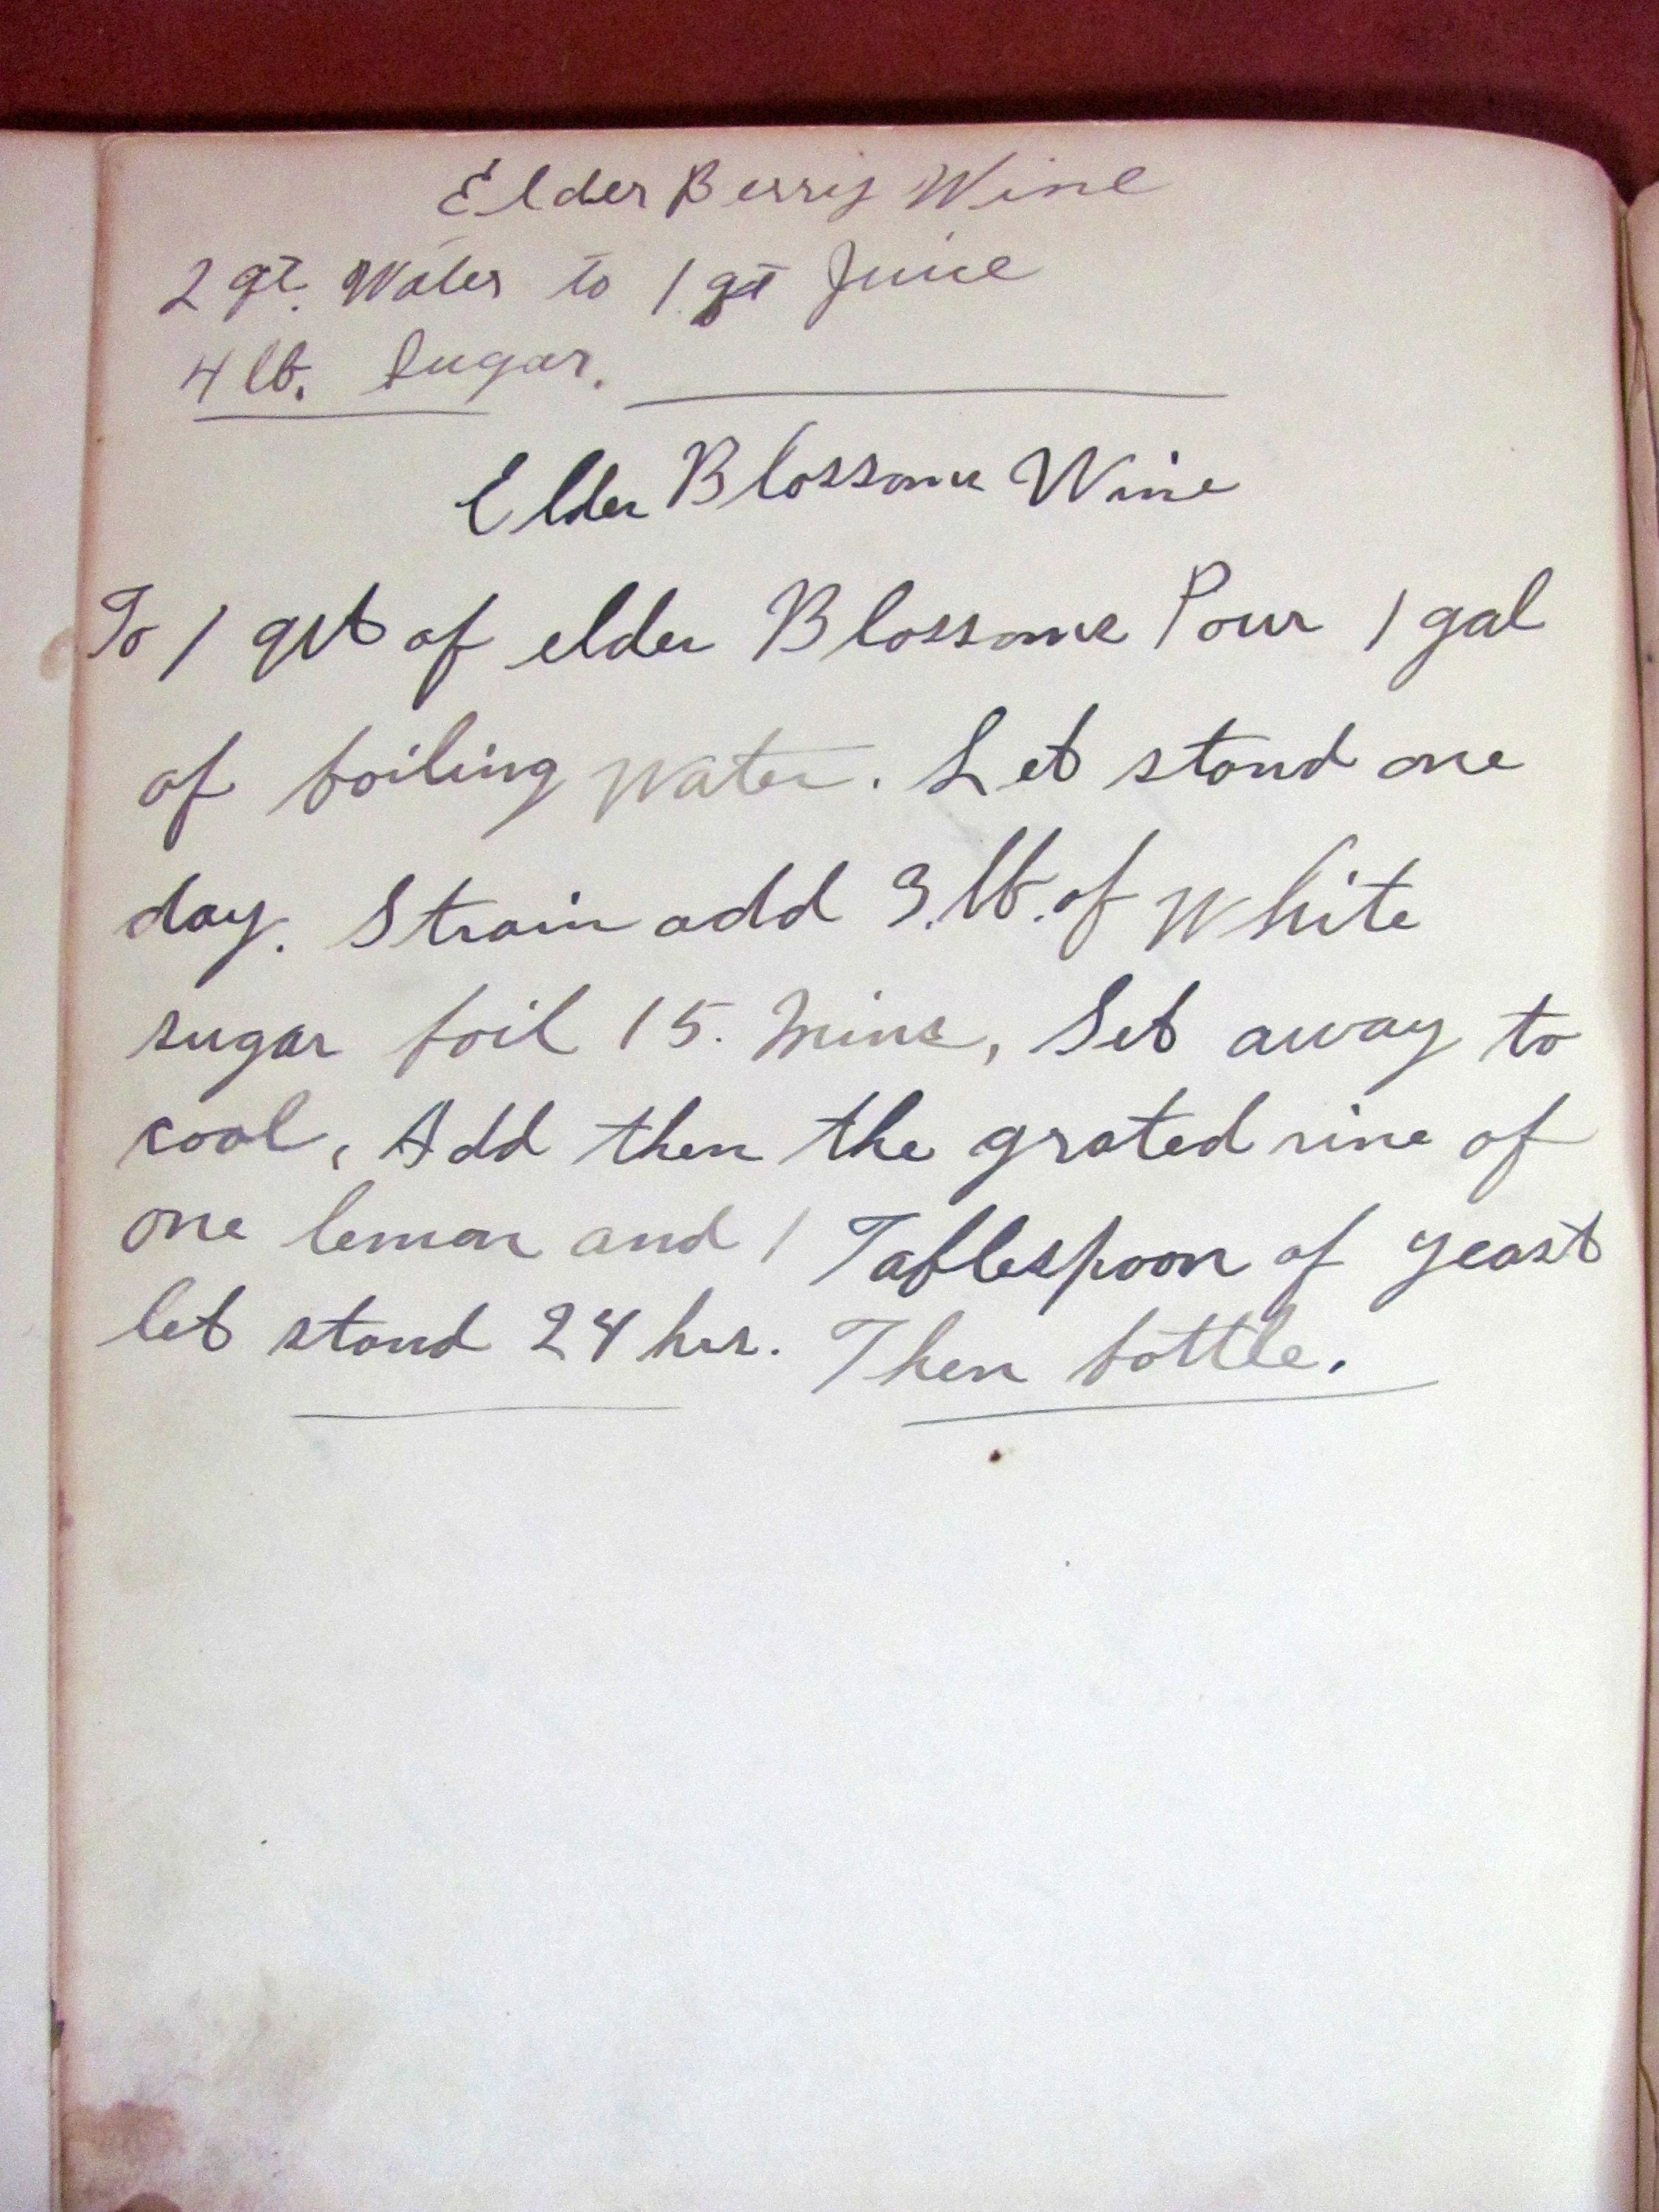 Elder Berry Wine
2 qt. Water to 1 qt Juice
4 lb. Sugar.
Elder Blossoms Wine
To 1 qrt of elder Blossoms Pour 1 gal
of boiling water. Let stand one
day. Strain add 3. lb. of White
sugar boil 15. Mins, Set away to
cool, Add then the grated rine of
one lemon and 1 Tablespoon of yeast
let stand 24 hrs. Then bottle.